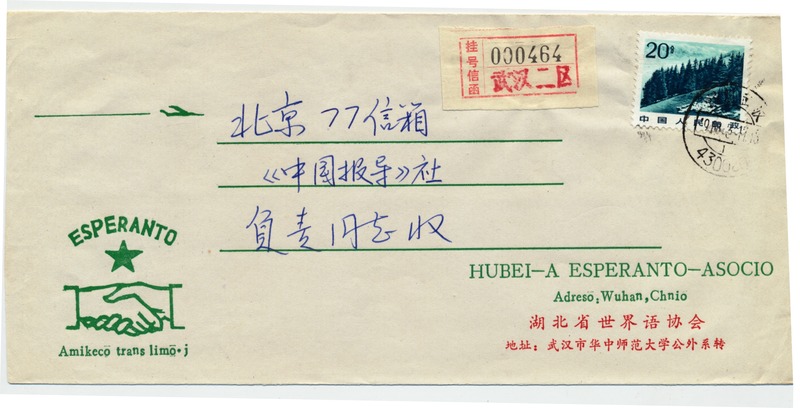 挂号信函
000464
武汉二区
20分
中国人民邮政
北京77信箱
《中国报导》社
负责同志收
ESPERANTO
Amikecō trans limō·j
HUBEI—A ESPERANTO—ASOCIO
Adresō: Wuhan, Chnio
湖北省世界语协会
地址：武汉市华中师范大学公外系转